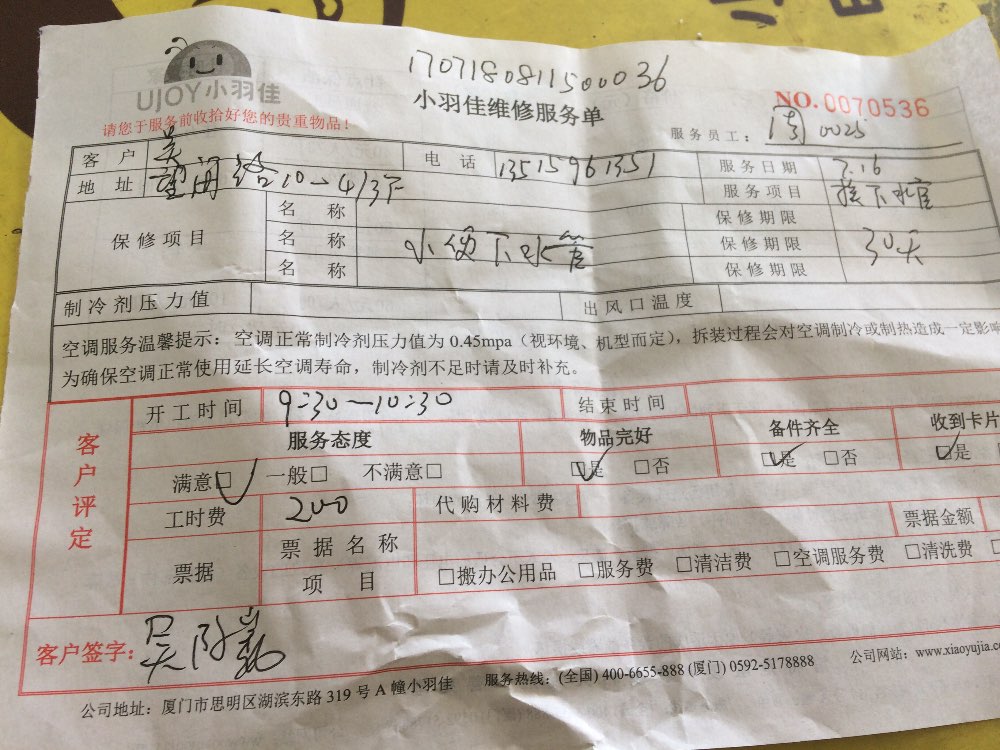 17071808115000036
UJOY小羽佳
小羽佳维修服务单
NO.0070536
请您于服务前收拾好您的贵重物品!
服务员工: 0025
客户 吴 电话 13515961351 服务日期 7.16
地址 10-413下 服务项目 接下水管
保修项目 名称 保修期限
名称 小便下水管 保修期限 30天
名称 保修期限
制冷剂压力值 出风口温度
空调服务温馨提示:空调正常制冷剂压力值为 0.45mpa(视环境、机型而定),拆装过程会对空调制冷或制热造成一定影响
为确保空调正常使用延长空调寿命,制冷剂不足时请及时补充。
客户评定
开工时间 9:30-10:30 结束时间
服务态度 物品完好 备件齐全 收到卡片
满意□ 一般□ 不满意□ □是 □否 □是 □否 □是
工时费 200 代购材料费
票据 票据名称 票据金额
项目 □搬办公用品 □服务费 □清洁费 □空调服务费 □清洗费
客户签字: 吴
公司地址:厦门市思明区湖滨东路 319 号 A 幢小羽佳 服务热线:(全国) 400-6655-888 (厦门) 0592-5178888 公司网站:www.xiaoyujia.c